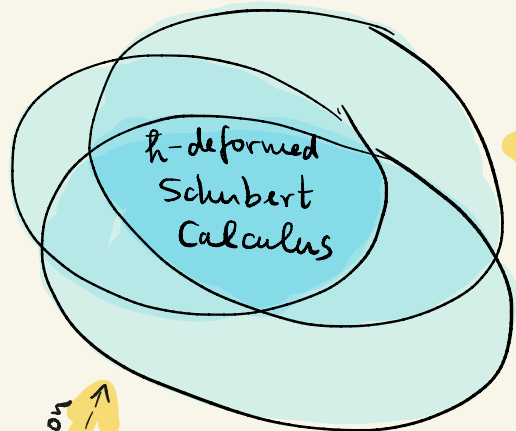 ħ-deformed
Schubert
Calculus
on